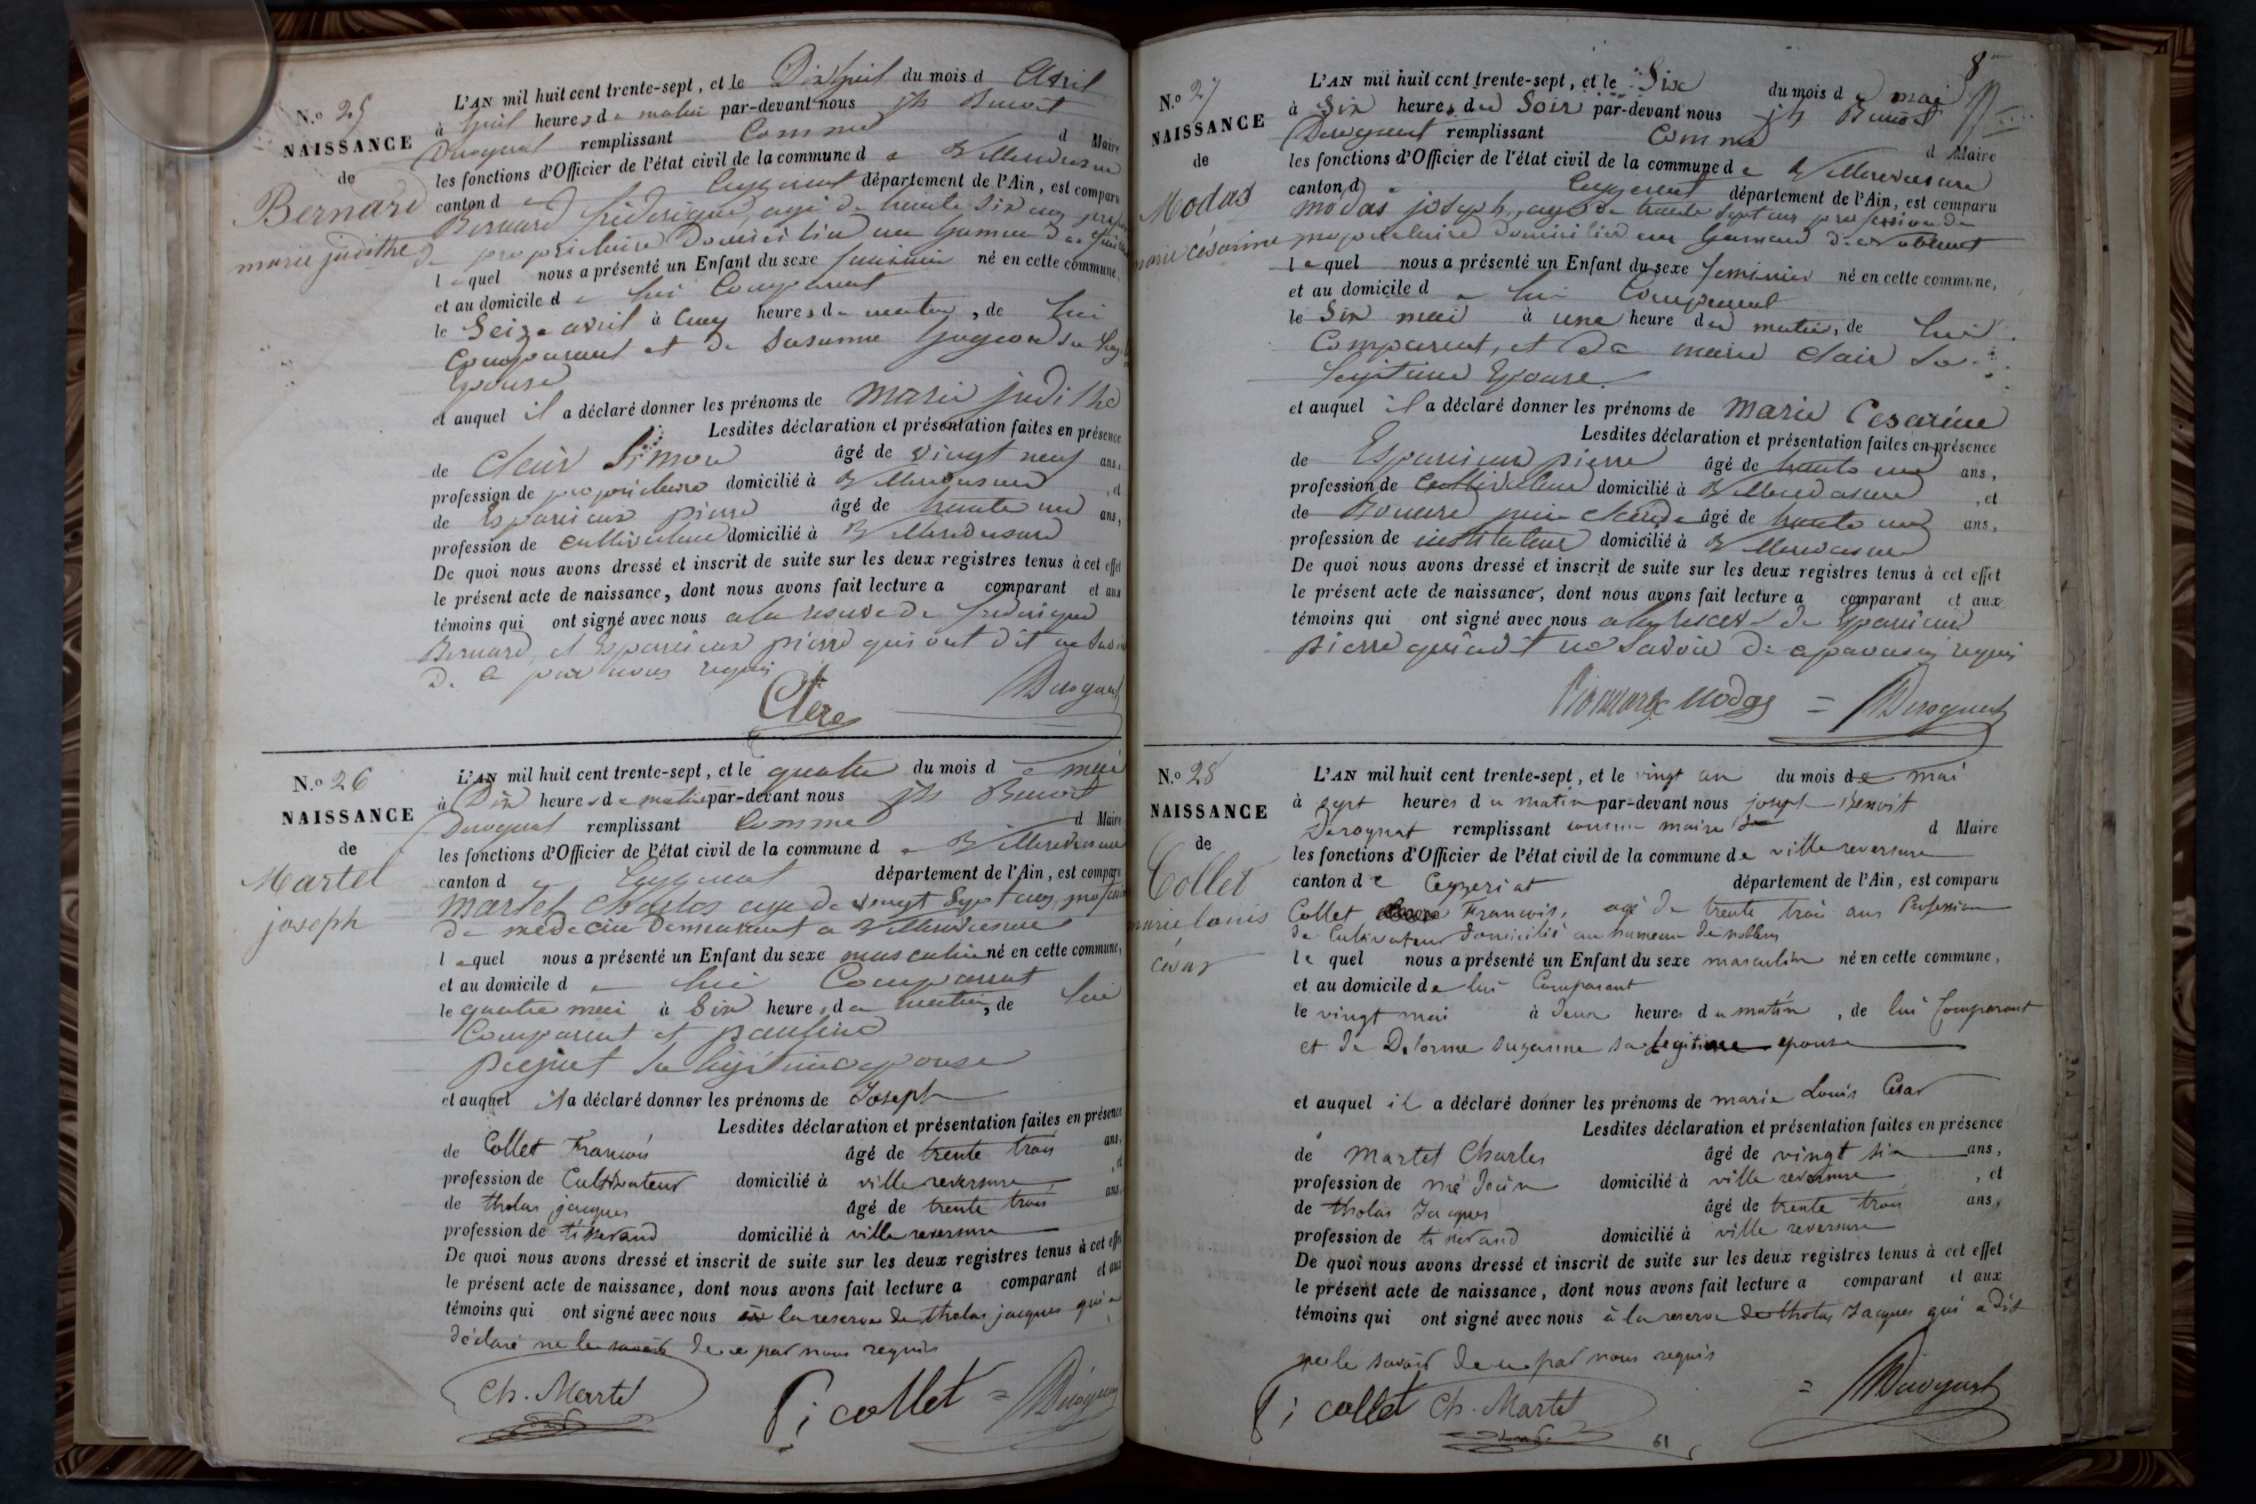 N.º 25
NAISSANCE
de
Bernard
marie judithe
L'AN mil huit cent trente-sept, et le Dix huit du mois d Avril
à huit heures de matin par-devant nous jh Benoit
Derognat remplissant Comme d Maire
les fonctions d'Officier de l'état civil de la commune de Villereversure
canton d Ceyzeriat département de l'Ain, est comparu
Bernard frédérique, agé de trente six ans, profession
de propriétaire Domicilié au hameau de
lequel nous a présenté un Enfant du sexe féminin né en cette commune,
et au domicile de lui Comparant
le Seize avril à cinq heures du matin, de lui
Comparant et de Susanne Gugeon sa leg.
Epouse
et auquel il a déclaré donner les prénoms de Marie judithe
Lesdites déclaration et présentation faites en présence
de Clair Simon âgé de vingt neuf ans,
profession de propriétaire domicilié à Villereversure, et
de Esparcieux pierre âgé de trente un ans,
profession de cultivateur domicilié à Villereversure
De quoi nous avons dressé et inscrit de suite sur les deux registres tenus à cet effet
le présent acte de naissance, dont nous avons fait lecture a comparant et aux
témoins qui ont signé avec nous a la reserve de frederique
Bernard, et Esparcieux pierre qui ont dit ne savoir
de ce par nous requis
Clere Derognat
N.º 26
NAISSANCE
de
Martel
joseph
L'AN mil huit cent trente-sept, et le quatre du mois de mai
à Dix heures de matin par-devant nous jh Benoit
Derognat remplissant Comme d Maire
les fonctions d'Officier de l'état civil de la commune de Villereversure
canton de Ceyzeriat département de l'Ain, est comparu
Martel Charles age de vingt Sept ans, profession
de médecin Demeurant a Villereversure
lequel nous a présenté un Enfant du sexe masculin né en cette commune,
et au domicile de lui Comparant
le quatre mai à Six heures du matin, de lui
Comparant et pauline
sa légitime epouse
et auquel il a déclaré donner les prénoms de Joseph
Lesdites déclaration et présentation faites en présence
de Collet Francois âgé de trente trois ans,
profession de Cultivateur domicilié à ville reversure, et
de tholas jacques âgé de trente trois ans,
profession de tisserand domicilié à ville reversure
De quoi nous avons dressé et inscrit de suite sur les deux registres tenus à cet effet
le présent acte de naissance, dont nous avons fait lecture a comparant et aux
témoins qui ont signé avec nous a la reserve de tholas jacques qui a
déclaré ne le savoir de ce par nous requis
Ch. Martel f; collet = Derognat
8
N.º 27
NAISSANCE
de
Modas
marie césarine
L'AN mil huit cent trente-sept, et le Six du mois de mai
à Six heures du Soir par-devant nous jh Benoit
Derognat remplissant Comme d Maire
les fonctions d'Officier de l'état civil de la commune de Villereversure
canton d Ceyzeriat département de l'Ain, est comparu
modas joseph, agé de trente sept ans profession de
propriétaire domicilié au hameau de noblens
lequel nous a présenté un Enfant du sexe feminin né en cette commune,
et au domicile de lui Comparant
le Six mai à une heure du matin, de lui
Comparant, et de marie clair sa
legitime Epouse.
et auquel il a déclaré donner les prénoms de Marie Cesarine
Lesdites déclaration et présentation faites en présence
de Esparcieux pierre âgé de trente un ans,
profession de Cultivateur domicilié à Villereversure, et
de claude âgé de trente un ans,
profession de instituteur domicilié à Villereversure
De quoi nous avons dressé et inscrit de suite sur les deux registres tenus à cet effet
le présent acte de naissance, dont nous avons fait lecture a comparant et aux
témoins qui ont signé avec nous a la reserve de Esparcieux
pierre qui a dit ne savoir de ce par nous requis
modas = Derognat
N.º 28
NAISSANCE
de
Collet
marie louis
César
L'AN mil huit cent trente-sept, et le vingt un du mois de mai
à sept heures du matin par-devant nous joseph Benoit
Derognat remplissant comme maire d Maire
les fonctions d'Officier de l'état civil de la commune de ville reversure
canton de Ceyzeriat département de l'Ain, est comparu
Collet Francois, agé de trente trois ans Profession
de Cultivateur domicilié au hameau de noblens
le quel nous a présenté un Enfant du sexe masculin né en cette commune,
et au domicile de lui Comparant
le vingt mai à deux heures du matin, de lui Comparant
et de Delorme Suzanne sa legitime epouse
et auquel il a déclaré donner les prénoms de marie Louis César
Lesdites déclaration et présentation faites en présence
de Martel Charles âgé de vingt six ans,
profession de médecin domicilié à ville reversure, et
de tholas Jacques âgé de trente trois ans,
profession de tisserand domicilié à ville reversure
De quoi nous avons dressé et inscrit de suite sur les deux registres tenus à cet effet
le présent acte de naissance, dont nous avons fait lecture a comparant et aux
témoins qui ont signé avec nous à la reserve de tholas Jacques qui a dit
ne le savoir de ce par nous requis
f; collet Ch. Martel = Derognat
61